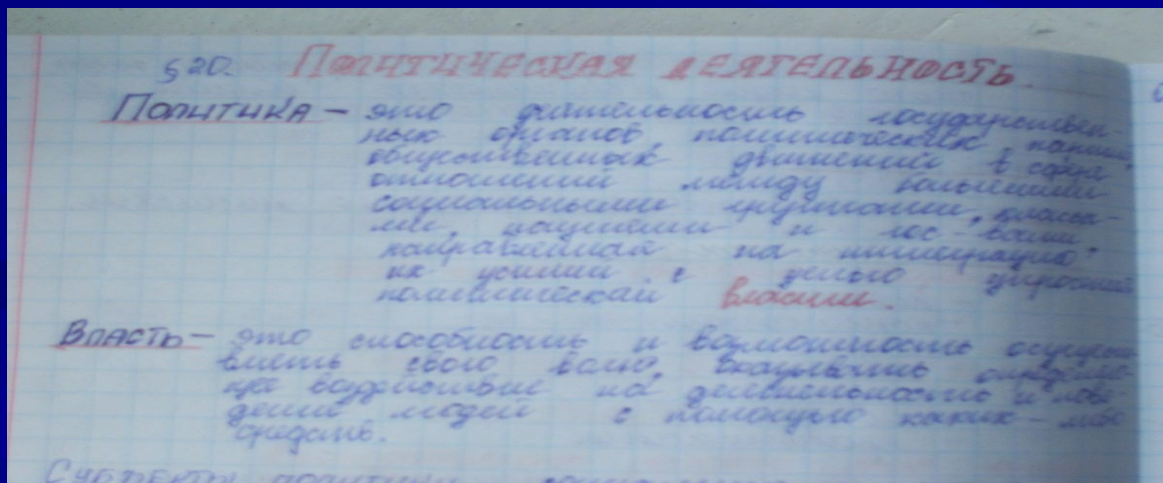 §20. Политическая деятельность.
Политика – это деятельность государствен-
ных органов, политических партий,
общественных движений в сфере
отношений между большими
социальными группами, класса-
ми, нациями и гос-вами,
направленная на интеграцию
их усилий с целью упрочения
политической власти.
Власть – это способность и возможность осущест
влять свою волю, оказывать определяю
щее воздействие на деятельность и пове
дение людей с помощью каких-либо
средств.
Субъекты политики